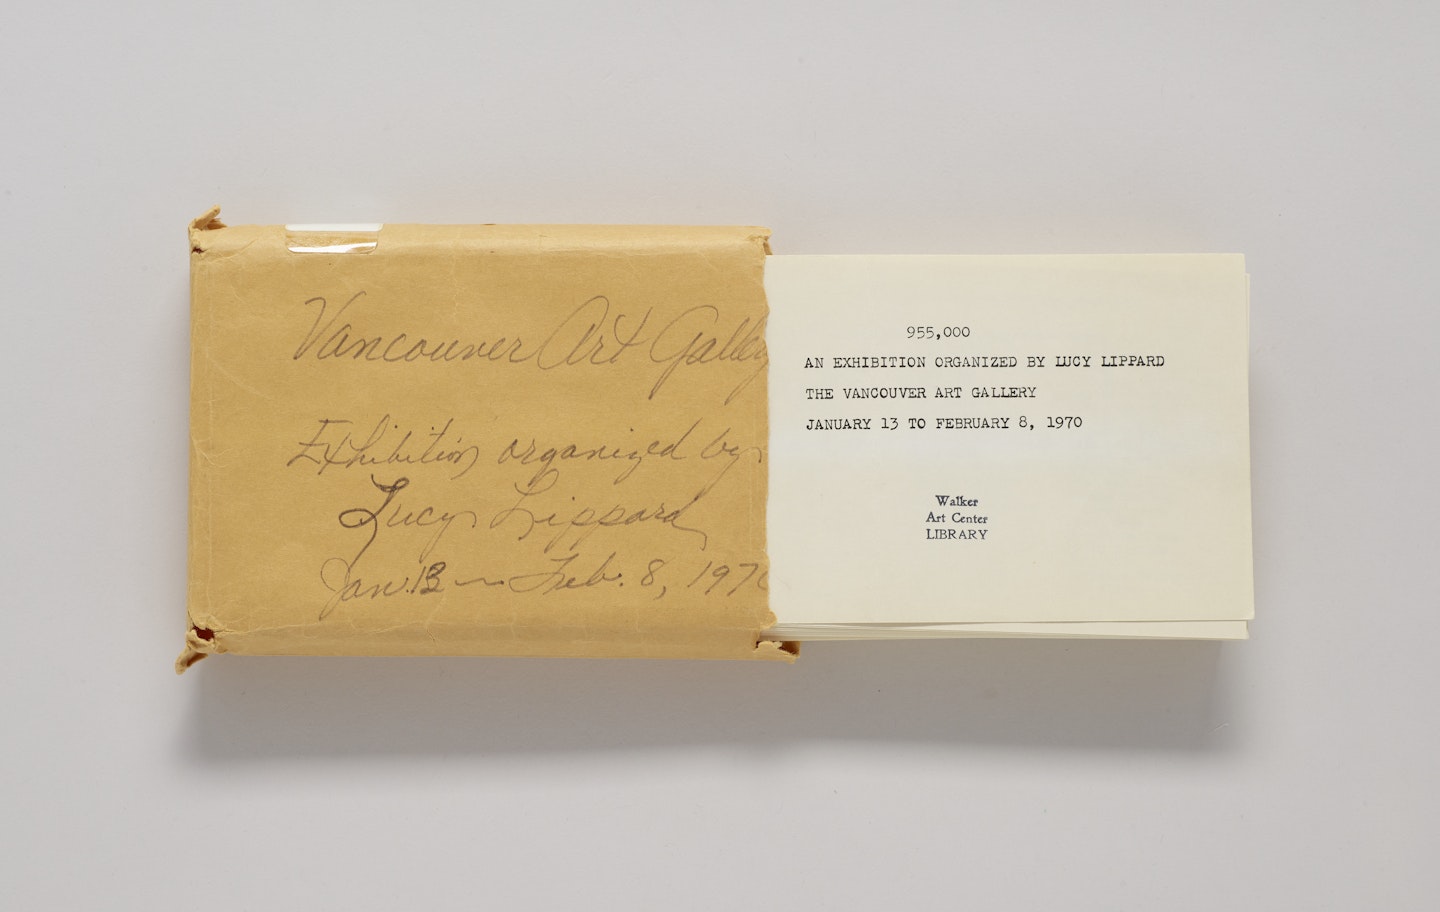 Vancouver Art Gallery
Exhibition organized by
Lucy Lippard
Jan. 13 — Feb. 8, 1970
955,000
AN EXHIBITION ORGANIZED BY LUCY LIPPARD
THE VANCOUVER ART GALLERY
JANUARY 13 TO FEBRUARY 8, 1970
Walker
Art Center
LIBRARY